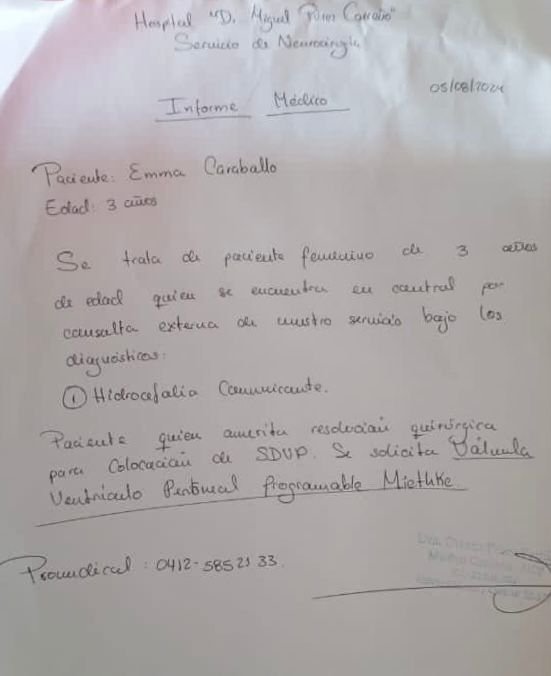 Hospital "D. Miguel Pérez Carreño"
Servicio de Neurocirugía
05/08/2024
Informe Médico
Paciente: Emma Caraballo
Edad: 3 años
Se trata de paciente femenino de 3 años
de edad quien se encuentra en control por
consulta externa de nuestro servicio bajo los
diagnósticos:
① Hidrocefalia Comunicante.
Paciente quien amerita resolución quirúrgica
para Colocación de SDVP. Se solicita Válvula
Ventrículo Peritoneal Programable Miethke.
Promedical: 0412-5852133.